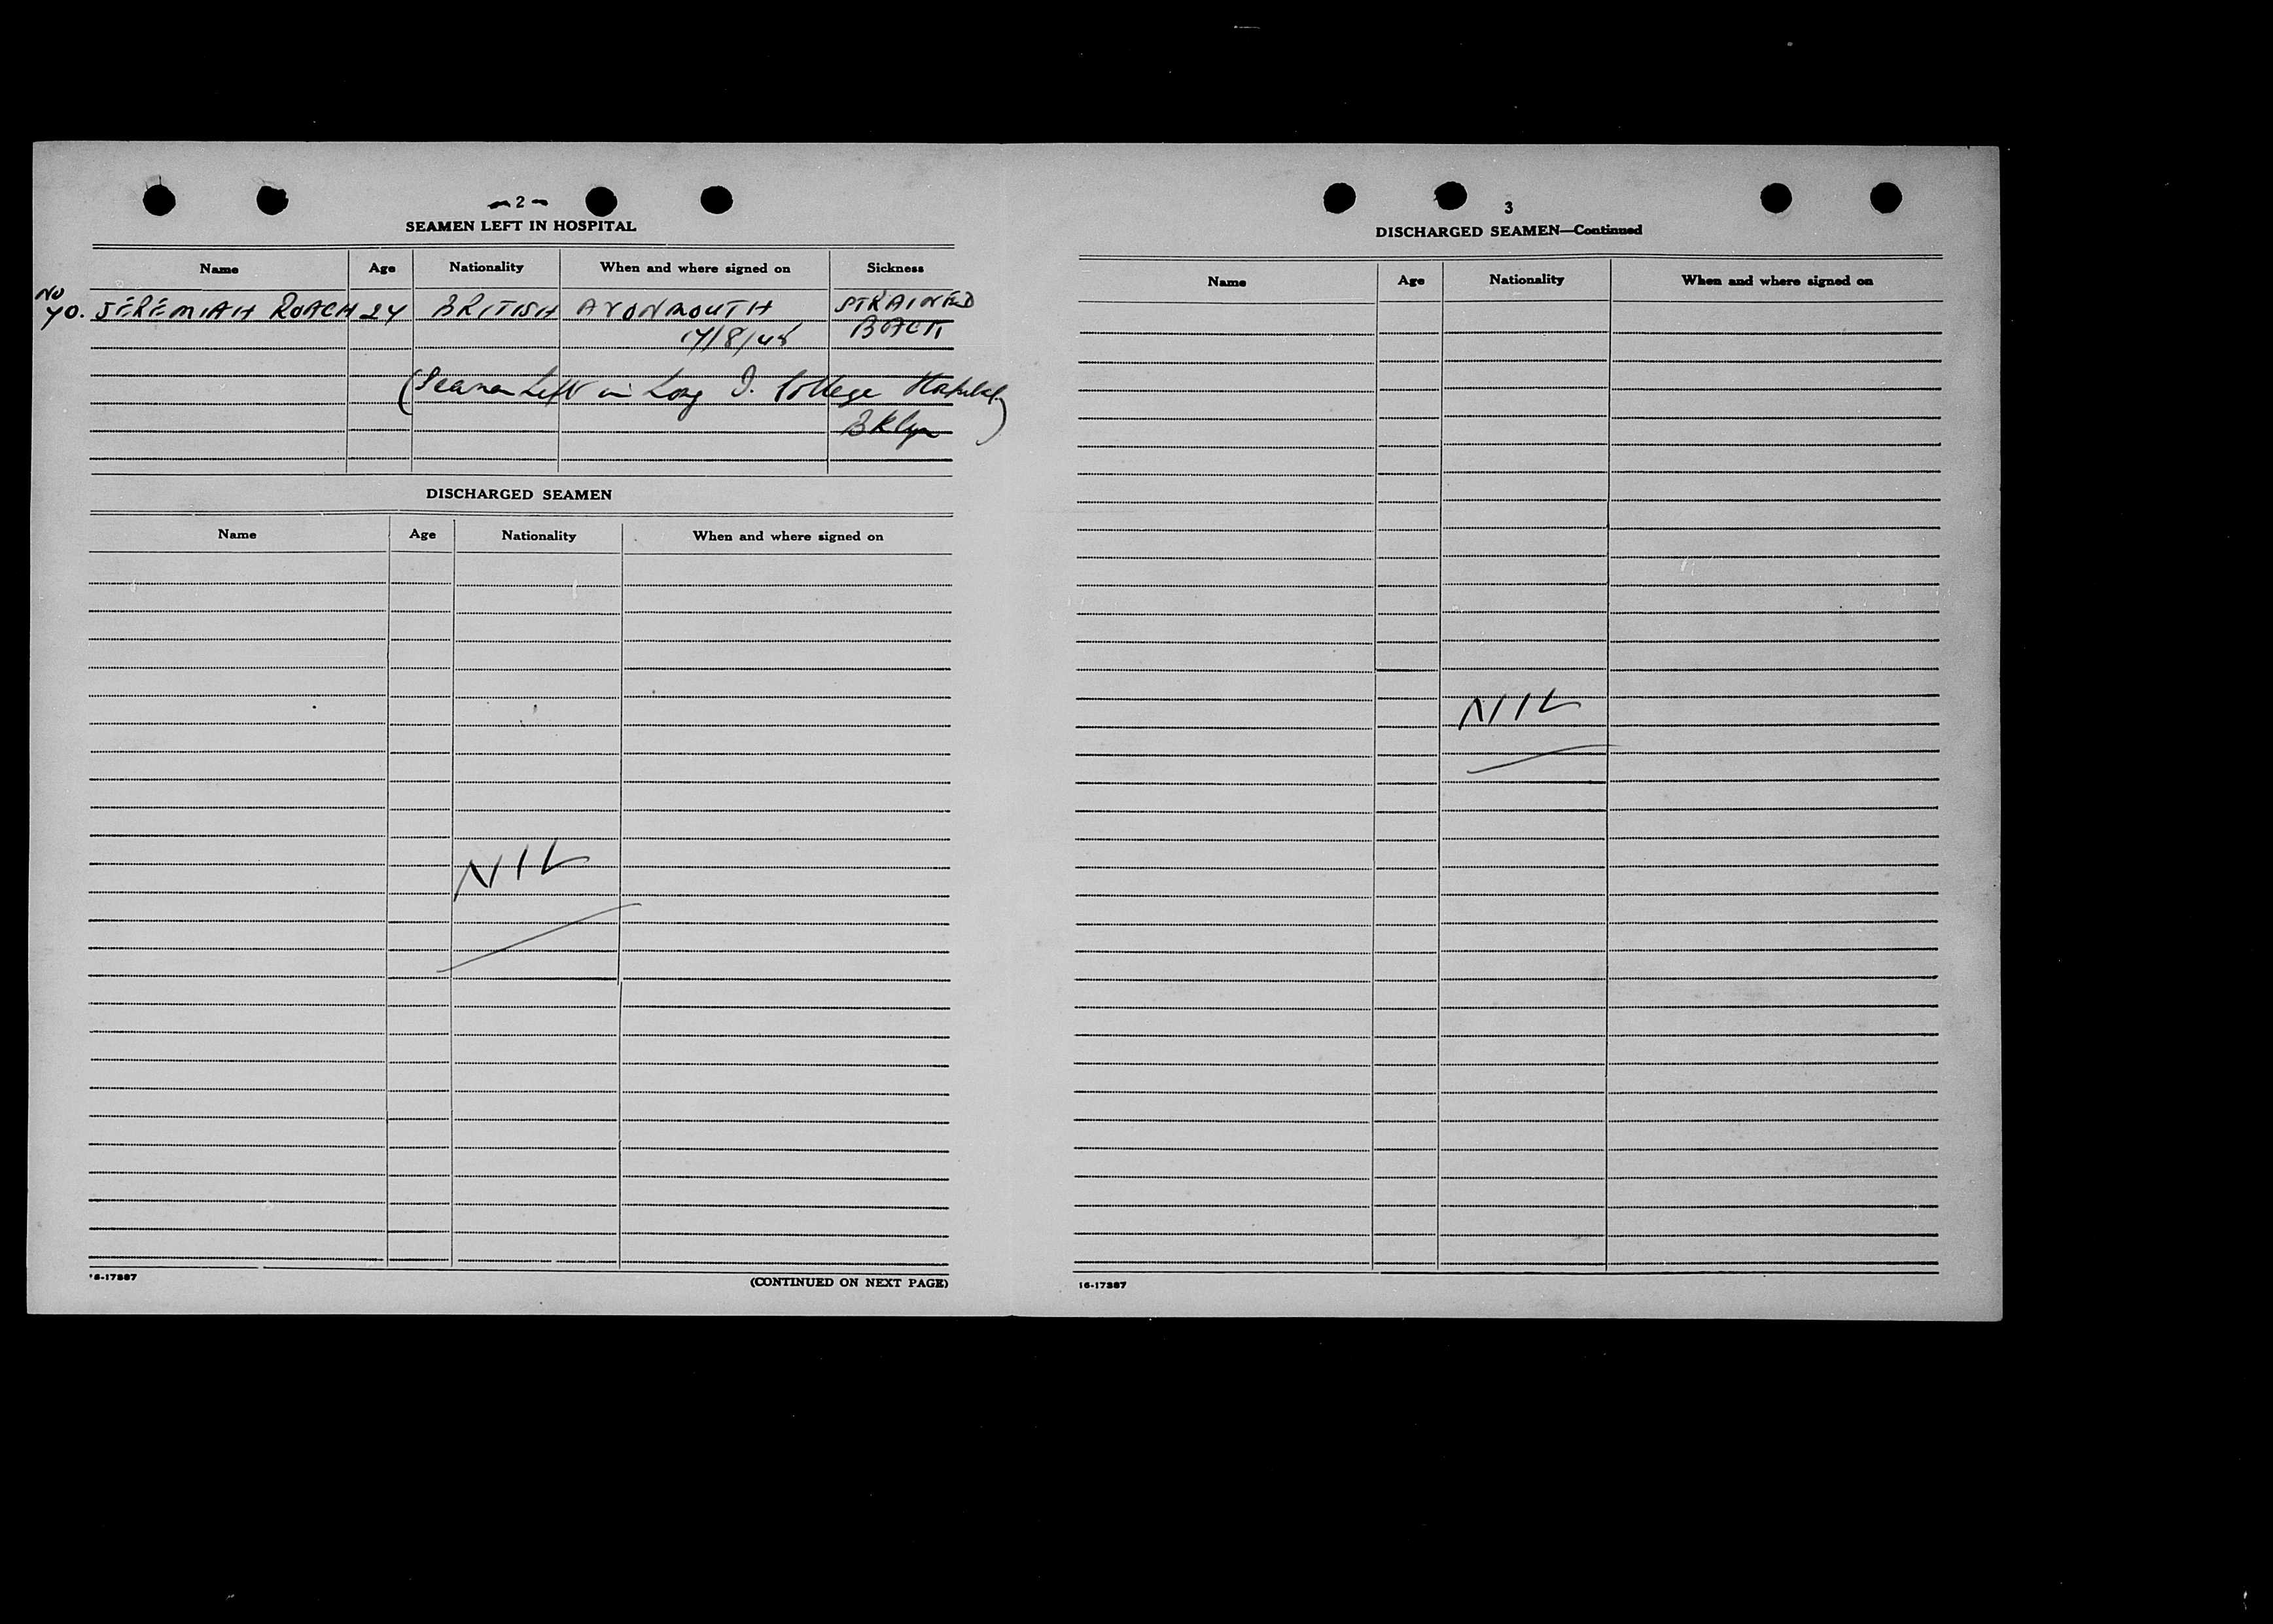 - 2 -
SEAMEN LEFT IN HOSPITAL
Name Age Nationality When and where signed on Sickness
No
40. JEREMIAH ROACH 24 BRITISH AVONMOUTH STRAINED
17/8/45 BACK
(Seaman Left in Long I. College Hospital.
Bklyn)
DISCHARGED SEAMEN
Name Age Nationality When and where signed on
NIL
16-17387
(CONTINUED ON NEXT PAGE)
3
DISCHARGED SEAMEN—Continued
Name Age Nationality When and where signed on
NIL
16-17387